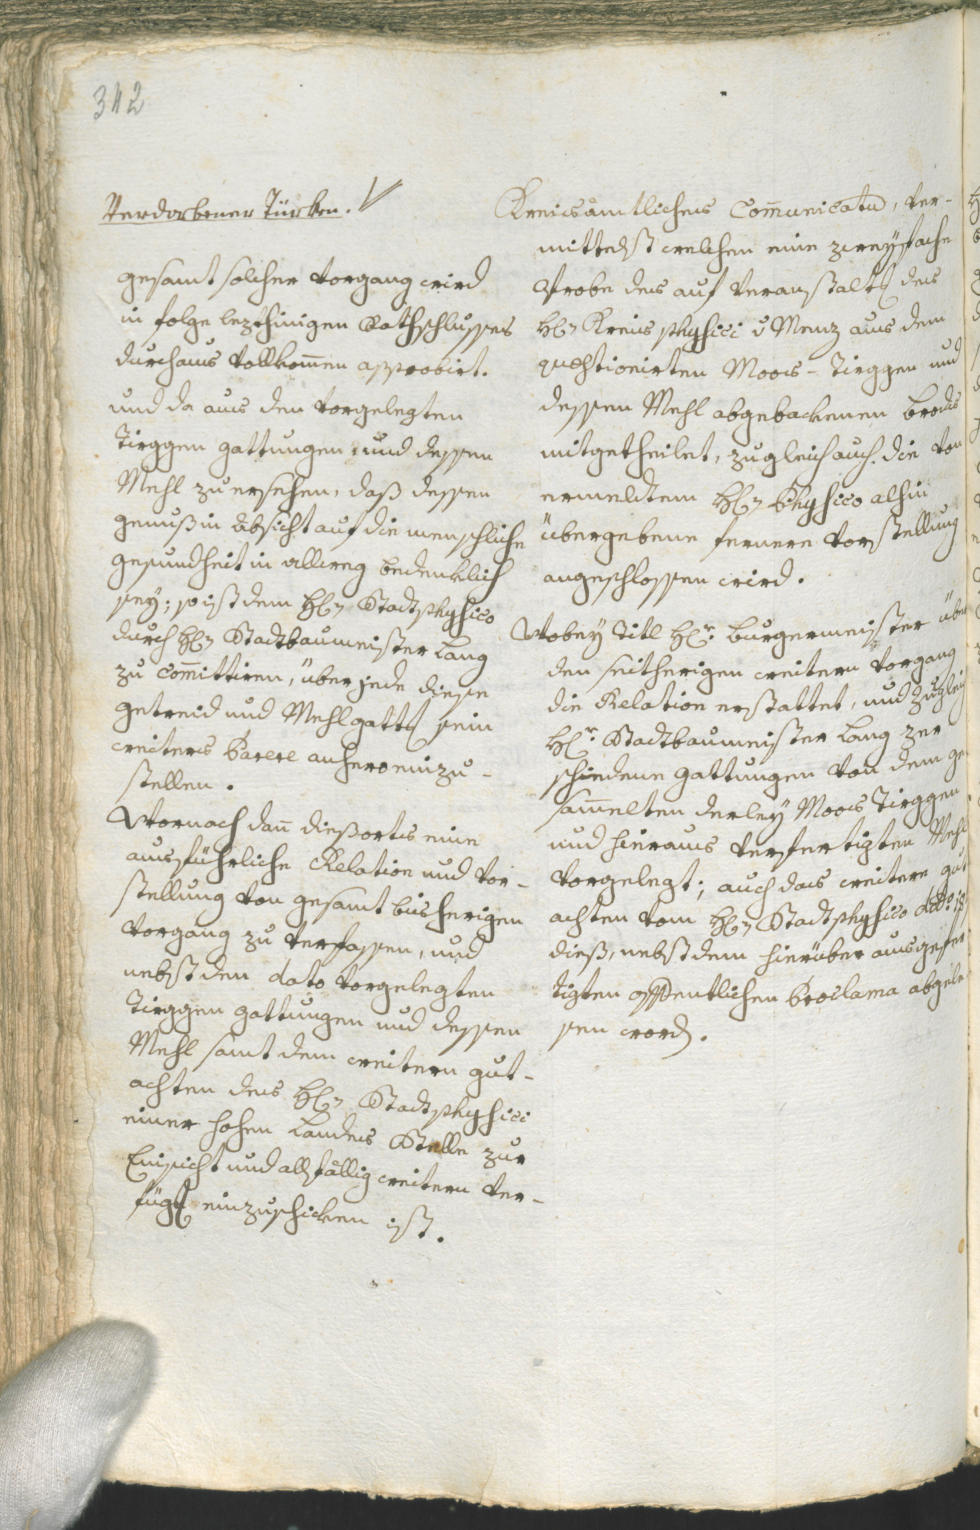 342
Verdorbener Türken.
gesamt solcher Vorgang wird
in folge lezthinigen Rathschlusses
durchaus vollkom̅en approbirt.
und da aus den vorgelegten
Tirggen gattungen und dessen
Mehl zu ersehen, daß dessen
genuß in absicht auf die menschliche
gesundheit in allweg bedenklich
seÿ; so ist dem H: Stadtphysico
durch H: Stadtbaumeister Lang
zu com̅ittiren, über jede diese
getreid und Mehlgattg sein
weiters Parere anhero einzu-
stellen.
Wornach dan̅ dießorts eine
ausführliche Relation und Vor-
stellung von gesamt bisherigen
Vorgang zu verfassen, und
nebst den dato vorgelegten
Tirggen gattungen und dessen
Mehl samt dem weitern gut-
achten des H: Stadtphysici
einer hohen Landes Stelle zur
Einsicht und allfällig weitern ver-
függ einzuschicken ist.
Kreisämtliches Com̅unicatu, ver-
mittelst welchen eine zweÿfache
Probe des auf Veranstaltg des
H: Kreis physici v Menz aus dem
questionirten Moos-Tirggen und
dessen Mehl abgebackenen Brods
mitgetheilet, zugleich auch die von
ermeldtem H: Physico alhin
übergebene fernere Vorstellung
angeschlossen wird.
Wobeÿ Titl Hr: burgermeister über
den seitherigen weitern Vorgang
die Relation erstattet, und zugleich
Hr: Stadtbaumeister Lang ver
schiedene gattungen von dem ge
sam̅elten derleÿ Moos Tirggen
und hieraus verfertigten Mehl
vorgelegt; auch das weitere gut
achten vom H: Stadtphysico ddo
dieß, nebst dem hierüber ausgefer
tigten offentlichen Proclama abgele
sen word.